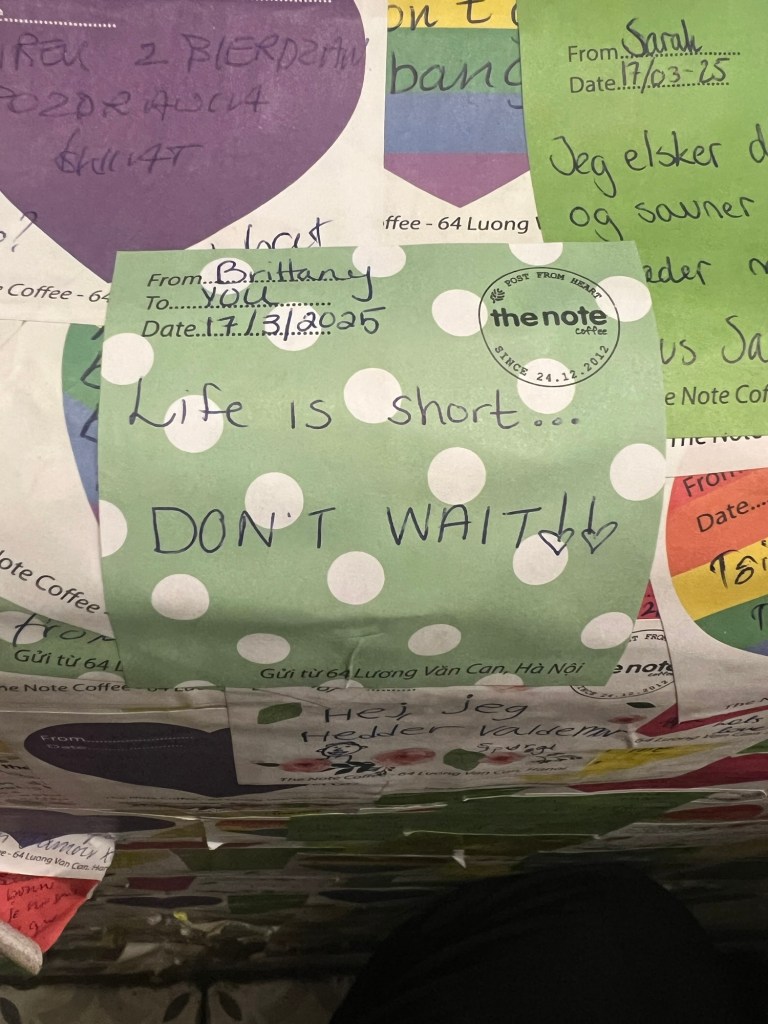 2 BIERDZAN
on't
bang
From Sarah
Date 17/03-25
Jeg elsker d
og savner
us Sa
e Note Cof
ffee - 64 Luong V
e Coffee - 64
From Brittany
To you
Date 17/3/2025
POST FROM HEART
the note
coffee
SINCE 24.12.2012
Life is short...
DON'T WAIT
Gửi từ 64 Lương Văn Can, Hà Nội
From
Date
ote Coffee -
from
Gửi từ 64 L
he Note Coffee
e note
Hej, jeg
Hedder Valdemar
The Note Coffee - 64 Luong Van Can, Hanoi
From
Date
e - 64 Luong Van Can, Ha